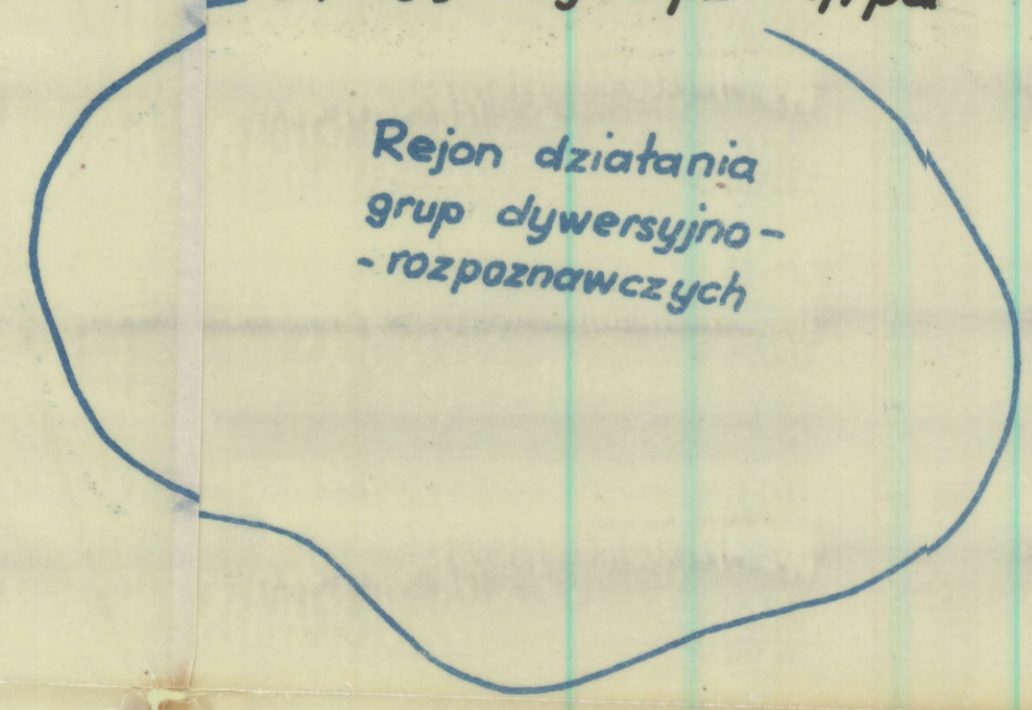 Rejon działania
grup dywersyjno-
-rozpoznawczych